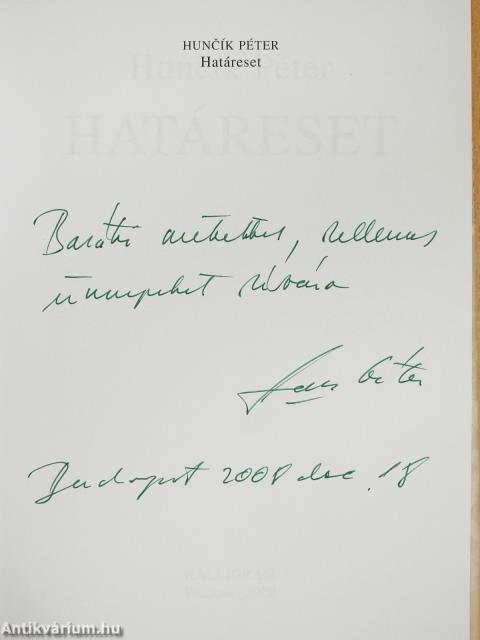 HUNČÍK PÉTER
Határeset
Hunčík Péter
HATÁRESET
Baráti szeretettel, kellemes
ünnepeket kívánva
Péter
Budapest 2008 dec. 18
KALLIGRAM
Antikvárium.hu